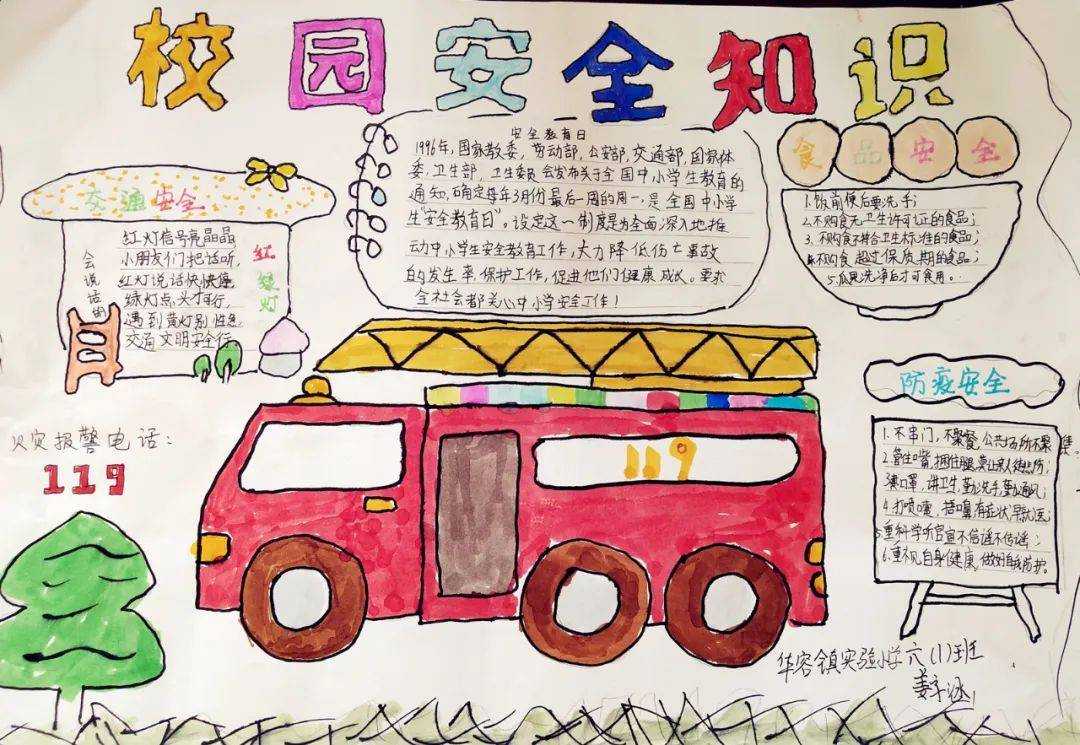 校园安全知识
交通安全
会说话的
红绿灯
红灯信号亮晶晶
小朋友们把话听,
红灯说话快快停
绿灯点头才可行,
遇到黄灯别性急
交通文明安全行
安全教育日
1996年,国家教委,劳动部,公安部,交通部,国家体
委,卫生部,卫生委员会发布关于全国中小学生教育的
通知,确定每年3月份最后一周的周一,是全国中小学
生"安全教育日"。设定这一制度是为全面深入地推
动中小学生安全教育工作,大力降低伤亡事故
的发生率,保护工作,促进他们健康成长。要求
全社会都关心中小学安全工作!
食品安全
1.饭前便后要洗手;
2.不购食无卫生许可证的食品;
3.不购食不符合卫生标准的食品;
4.不购食超过保质期的食品;
5.瓜果洗净后才可食用。
火灾报警电话:
119
119
防疫安全
1.不串门,不聚餐,公共场所不聚集
2.管住嘴,捆住腿,莫让亲人徒悲伤;
戴口罩,讲卫生,勤洗手,勤通风;
4.打喷嚏,捂嘴,有症状,早就医;
5重科学听官宣不信谣不传谣;
6.重视自身健康,做好自我防护。
华容镇实验小学六(1)班